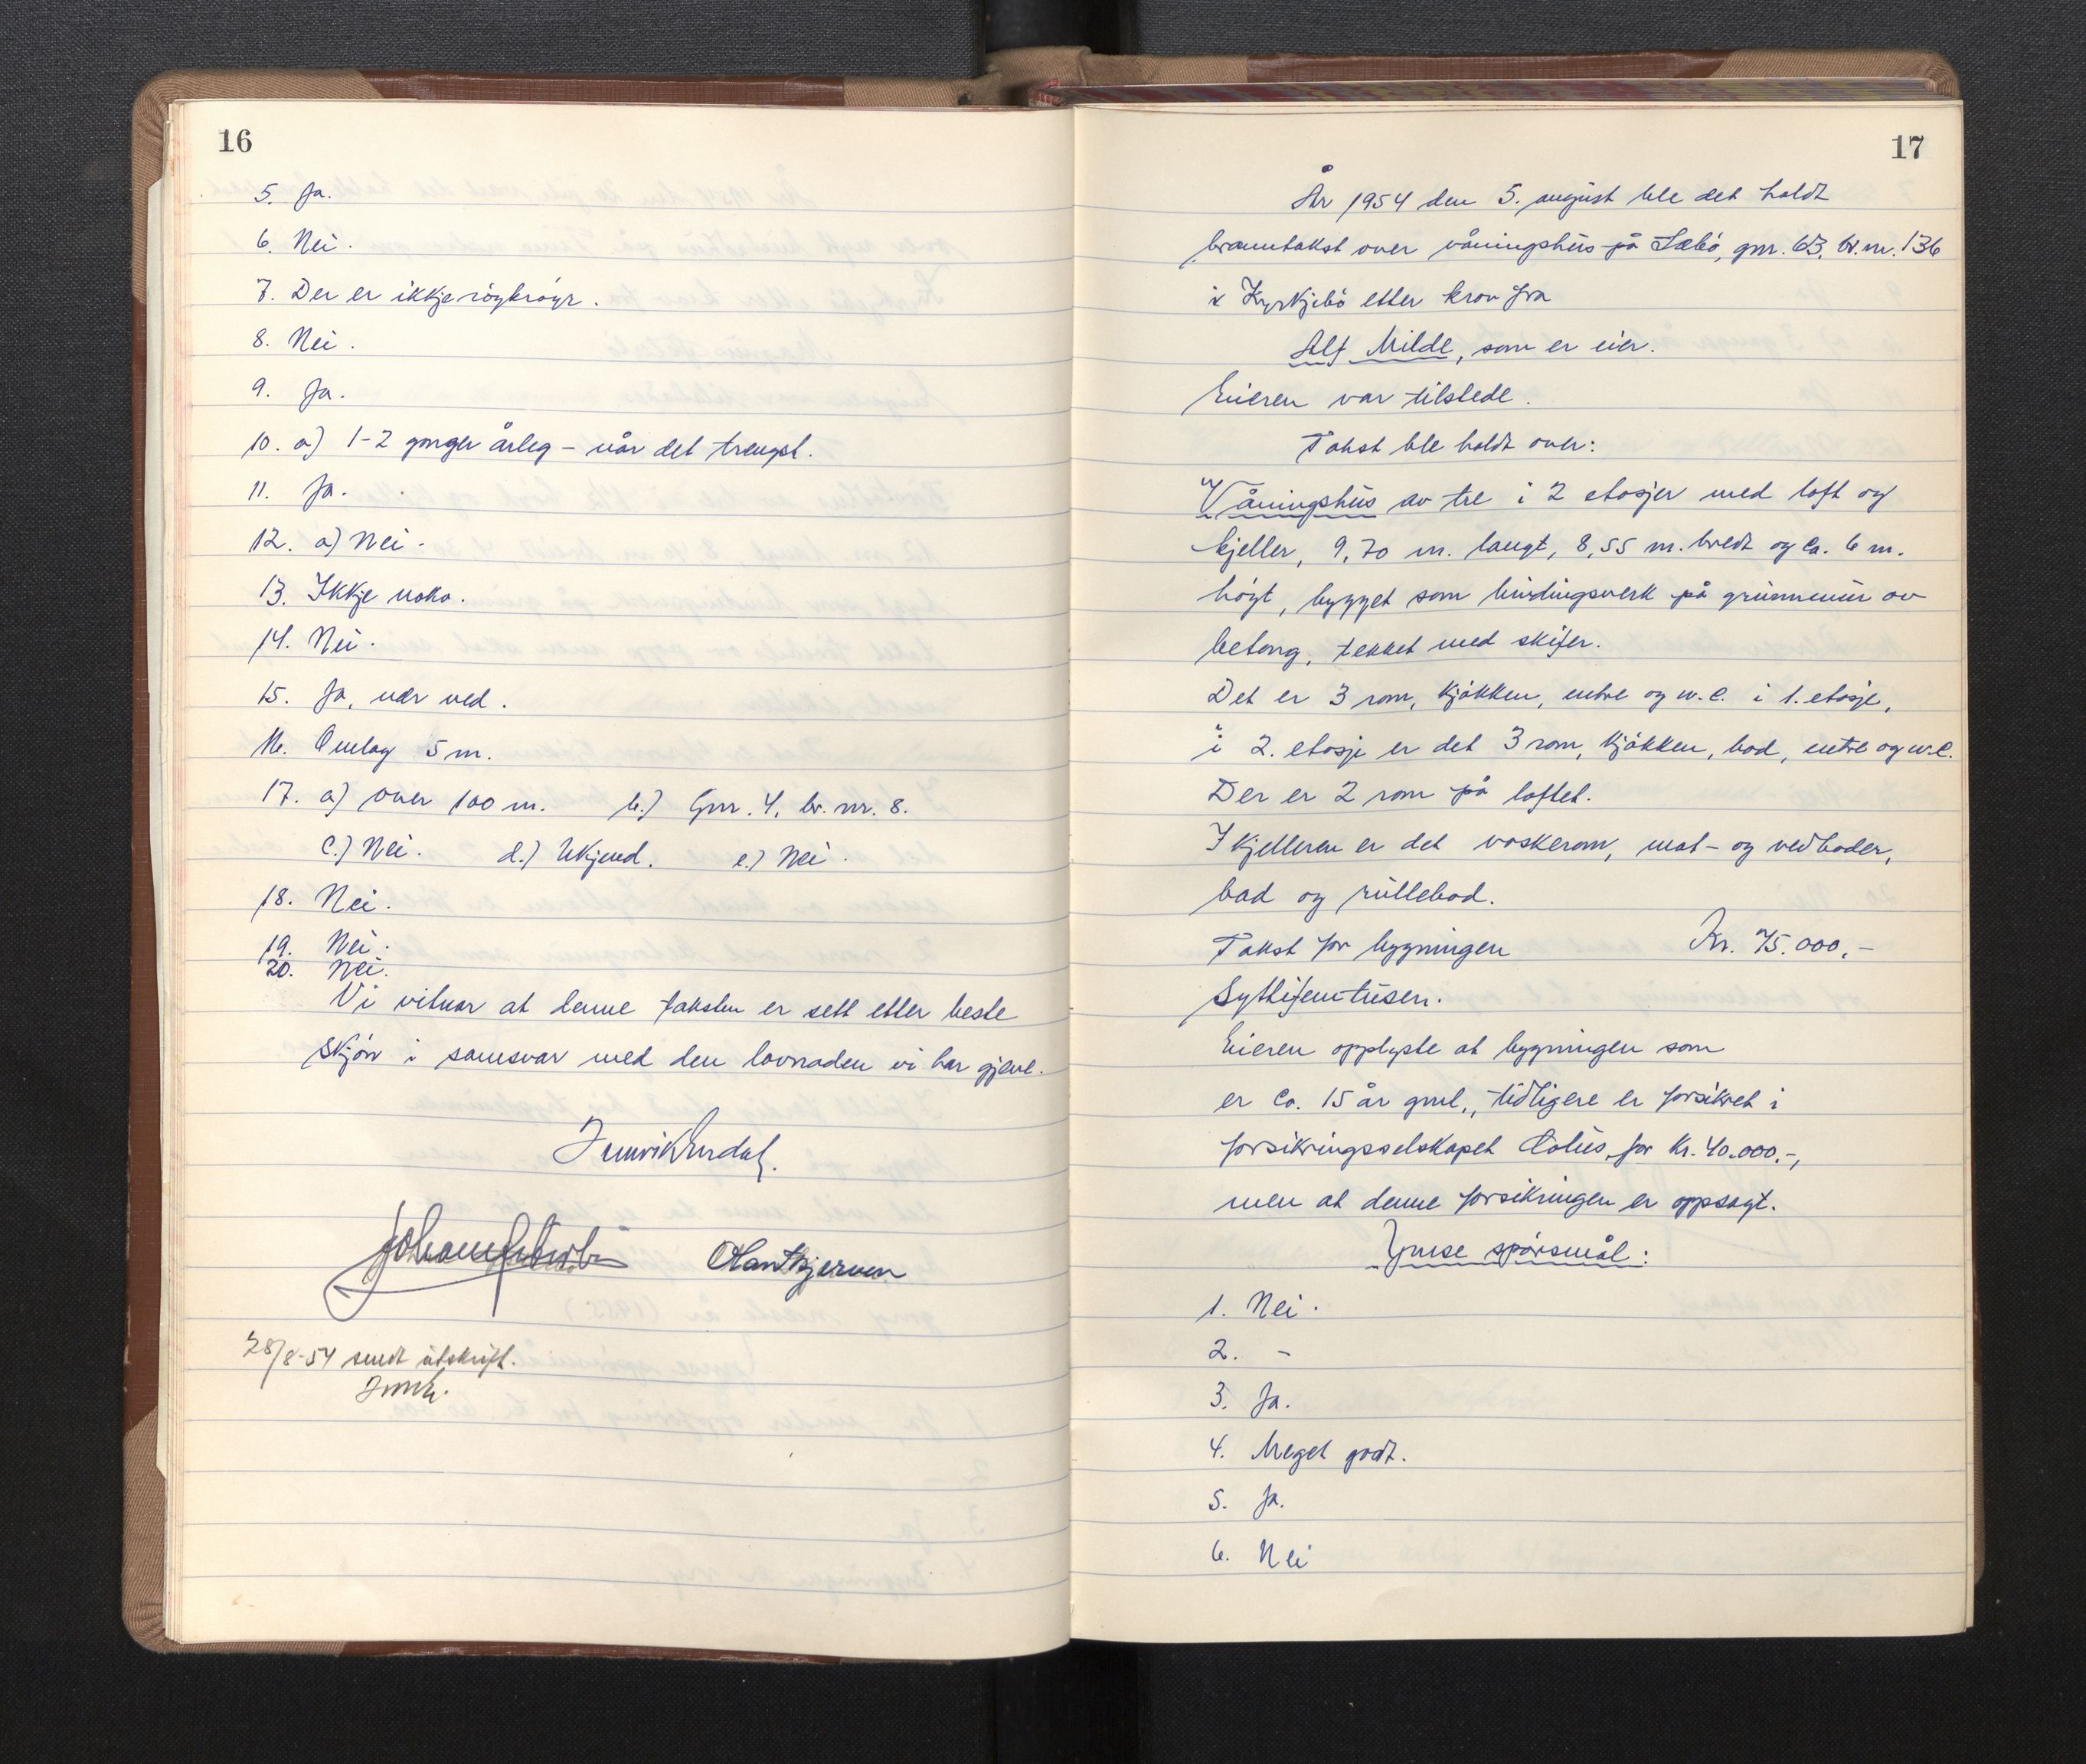 16
5. Ja.
6. Nei.
7. Der er ikkje röykröyr.
8. Nei.
9. Ja.
10. a) 1-2 gonger årleg - når det trengst.
11. Ja.
12. a) Nei.
13. Ikkje noko.
14. Nei.
15. Ja, nær ved.
16. Omlag 5 m.
17. a) over 100 m. b.) Gnr. 4, br. nr. 8.
c.) Nei. d.) Ukjend. e.) Nei.
18. Nei.
19. Nei.
20. Nei.
Vi vitnar at denne taksten er sett etter beste
skjön i samsvar med den lovnaden vi har gjeve.
28/8-54 sendt utskrift.
17
År 1954 den 5. august ble det holdt
branntakst over våningshus på Sæbö, gnr. 63, br. nr. 136
i Kyrkjebö etter krav fra
Alf Milde, som er eier.
Eieren var tilstede.
Takst ble holdt over:
Våningshus av tre i 2 etasjer med loft og
kjeller, 9,70 m. langt, 8,55 m. bredt og ca. 6 m.
högt, bygget som bindingsverk på grunnmur av
betong, tekket med skifer.
Det er 3 rom, kjökken, entre og w.c. i 1. etasje,
i 2. etasje er det 3 rom, kjökken, bod, entre og w.c.
Der er 2 rom på loftet.
I kjelleren er det vaskerom, mat- og vedboder,
bad og rullebod.
Takst for bygningen Kr. 75.000,-
Syttifemtusen.
Eieren opplyste at bygningen som
er ca. 15 år gml., tidligere er forsikret i
forsikringsselskapet Æolus, for kr. 40.000.-,
men at denne forsikringen er oppsagt.
Ymse spörsmål:
1. Nei.
2. -
3. Ja.
4. Meget godt.
5. Ja.
6. Nei